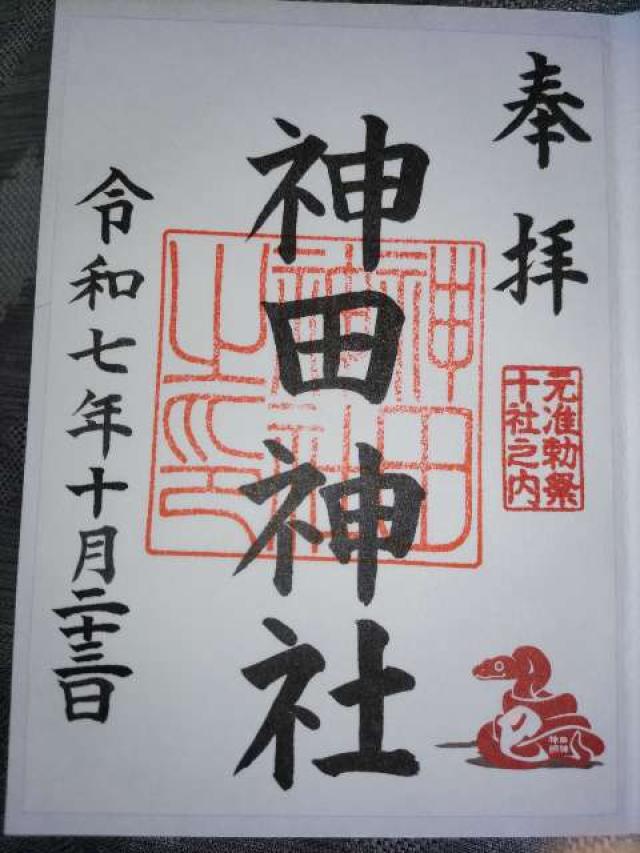 奉拝
元准勅祭
十社之内
巳
神田神社
神田神社之印
令和七年十月二十三日